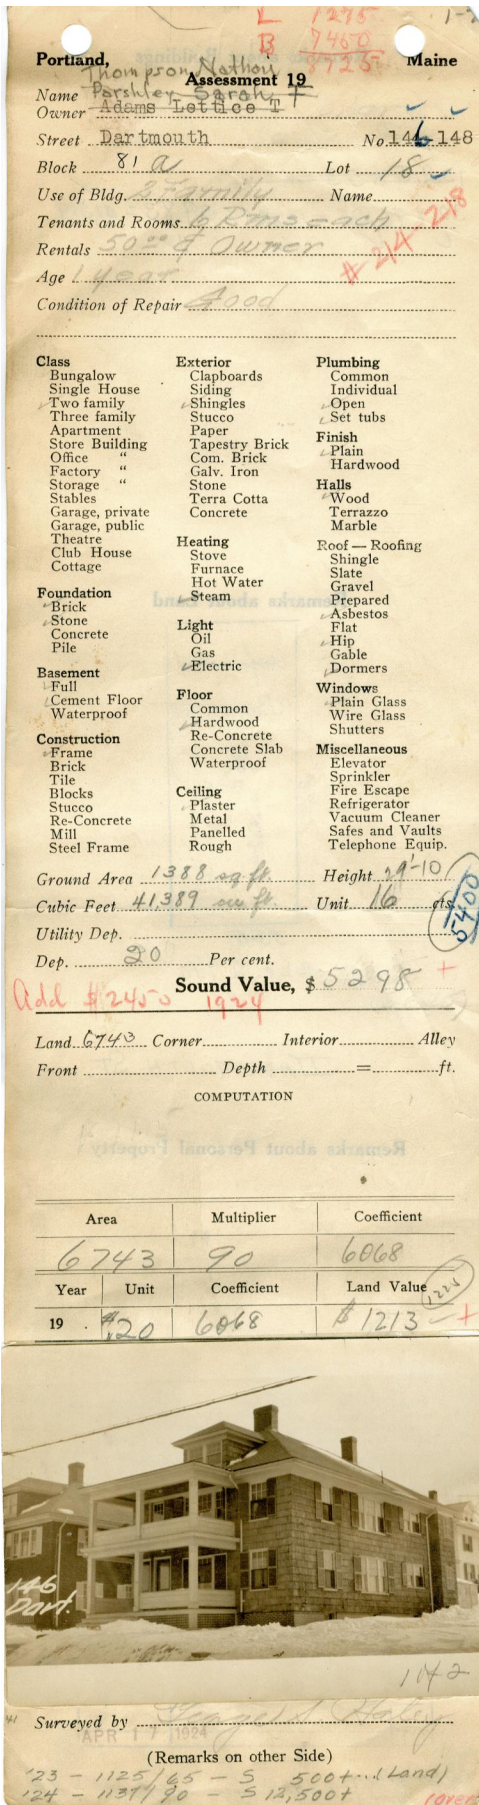 L 1275
B 7450
8725
Portland, Assessment 19 Maine
Thompson Nathan
Name Parshley Sarah F
Owner Adams Lettice T
Street Dartmouth No. 146 148
Block 81 a Lot 18
Use of Bldg. 2 Family Name
Tenants and Rooms 6 Rms each
# 214-218
Rentals 50 00 & Owner
Age 1 year
Condition of Repair Good
Class
Bungalow
Single House
Two family
Three family
Apartment
Store Building
Office "
Factory "
Storage "
Stables
Garage, private
Garage, public
Theatre
Club House
Cottage
Foundation
Brick
Stone
Concrete
Pile
Basement
Full
Cement Floor
Waterproof
Construction
Frame
Brick
Tile
Blocks
Stucco
Re-Concrete
Mill
Steel Frame
Exterior
Clapboards
Siding
Shingles
Stucco
Paper
Tapestry Brick
Com. Brick
Galv. Iron
Stone
Terra Cotta
Concrete
Heating
Stove
Furnace
Hot Water
Steam
Light
Oil
Gas
Electric
Floor
Common
Hardwood
Re-Concrete
Concrete Slab
Waterproof
Ceiling
Plaster
Metal
Panelled
Rough
Plumbing
Common
Individual
Open
Set tubs
Finish
Plain
Hardwood
Halls
Wood
Terrazzo
Marble
Roof — Roofing
Shingle
Slate
Gravel
Prepared
Asbestos
Flat
Hip
Gable
Dormers
Windows
Plain Glass
Wire Glass
Shutters
Miscellaneous
Elevator
Sprinkler
Fire Escape
Refrigerator
Vacuum Cleaner
Safes and Vaults
Telephone Equip.
Ground Area 1388 sq. ft. Height 29'-10
Cubic Feet 41,389 cu ft. Unit 16 cts.
5400
Utility Dep.
Dep. 20 Per cent.
Sound Value, $ 5298 +
Add $2450 1924
Land 6743 Corner Interior Alley
Front Depth = ft.
COMPUTATION
Remarks about Personal Property
Area Multiplier Coefficient
6743 90 6068
Year Unit Coefficient Land Value
1225
19 . $20 6068 $1213 +
146
Dart.
1142
41
Surveyed by George S. Haley
APR 17 1924
(Remarks on other Side)
'23 - 1125/65 - S 500+ (Land)
'24 - 1137/90 - S 12,500+
(over)